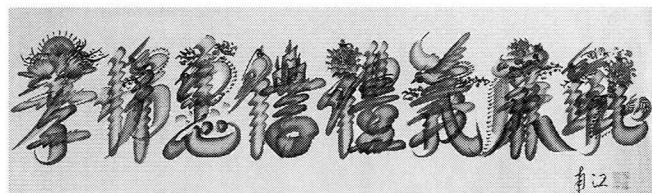 孝悌忠信禮義廉恥